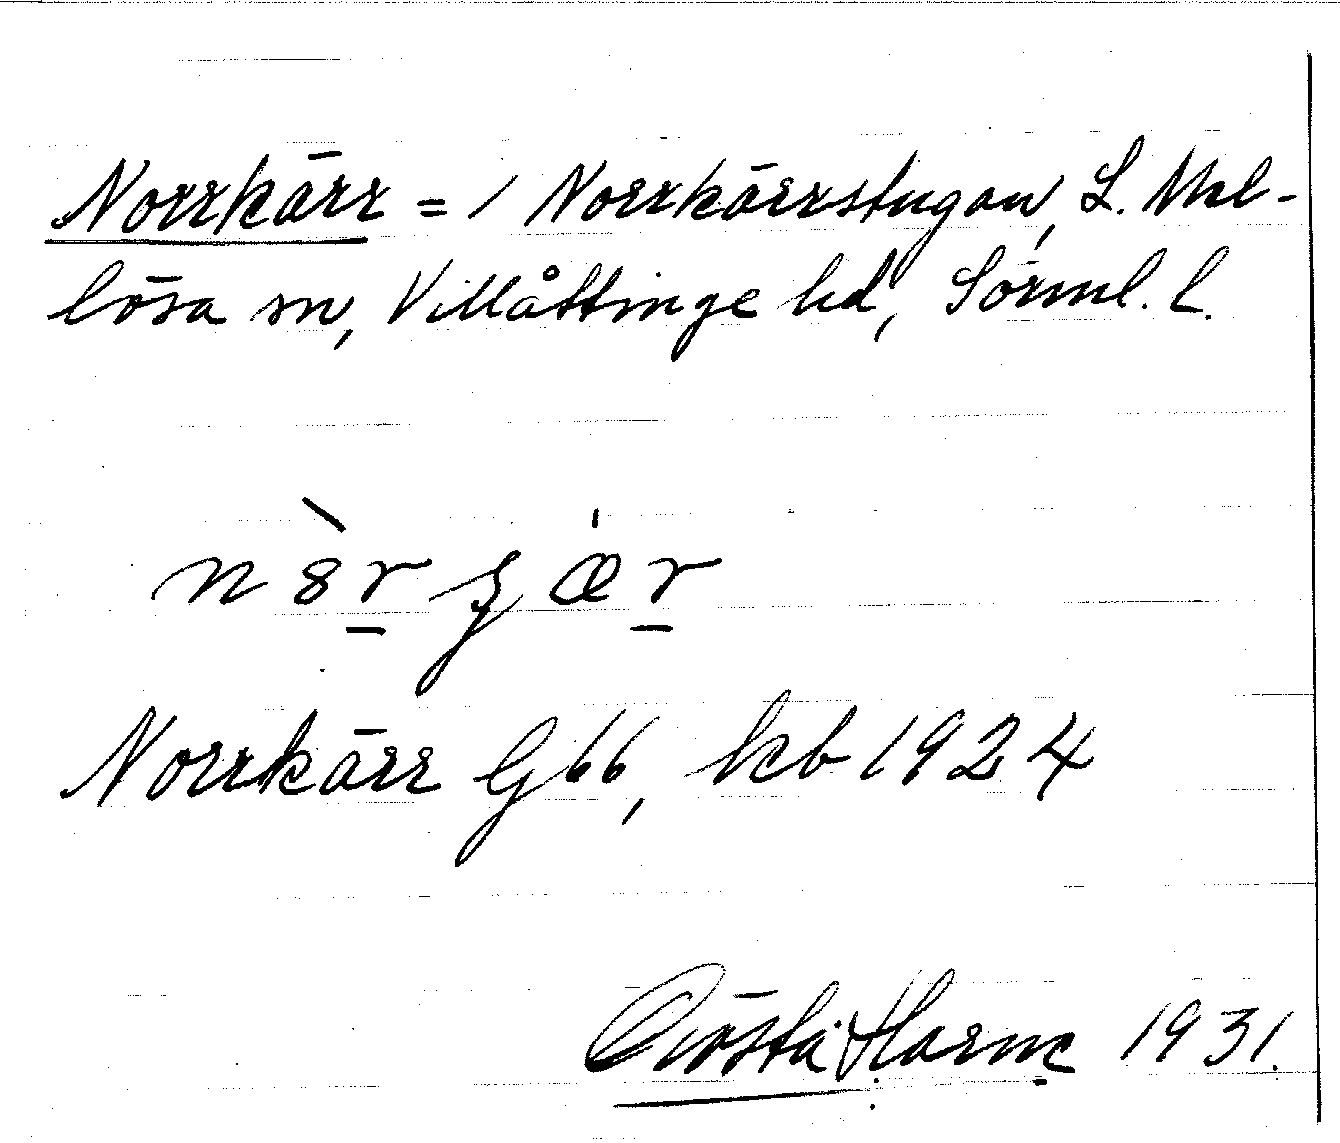 Norrkärr = / Norrkärrstugan, L. Mel-
lösa sn, Villåttinge hd, Sörml. l.
nòr ær
Norrkärr G66, kb 1924
Gösta Harne 1931.